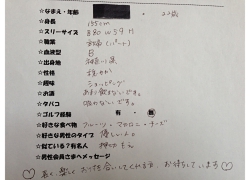 ☆なまえ・年齢 22歳
☆身長 155cm
☆スリーサイズ B80 W59 H
☆職業 主婦(パート)
☆血液型 B
☆出身地 神奈川県
☆性格 穏やか
☆趣味 ショッピング
☆お酒 あまり飲まないです。
☆タバコ 吸わないです。
☆ゴルフ経験 有・無
☆好きな食べ物 フルーツ・マカロニ・チーズ
☆好きな男性のタイプ 優しい人
☆似ている有名人
☆男性会員さまへメッセージ
長く楽しくお付き合いしてくれる方 お待ちしています♡